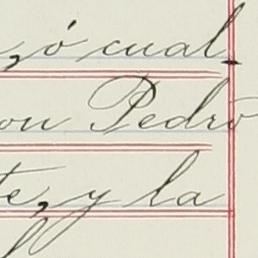 , ó cual-
on Pedro
te, y la